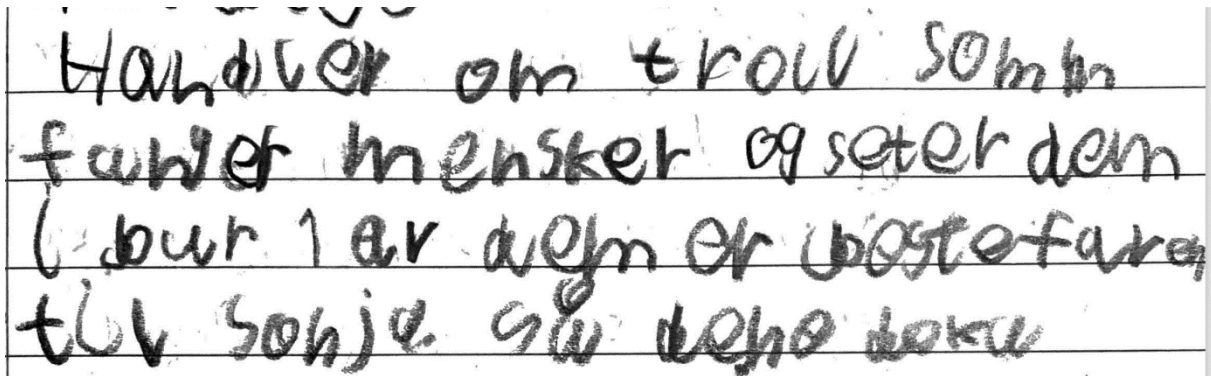 Handler om troll somm
fanger mensker og seter dem
i bur 1 av dem er bestefaren
til sonja så dene boka